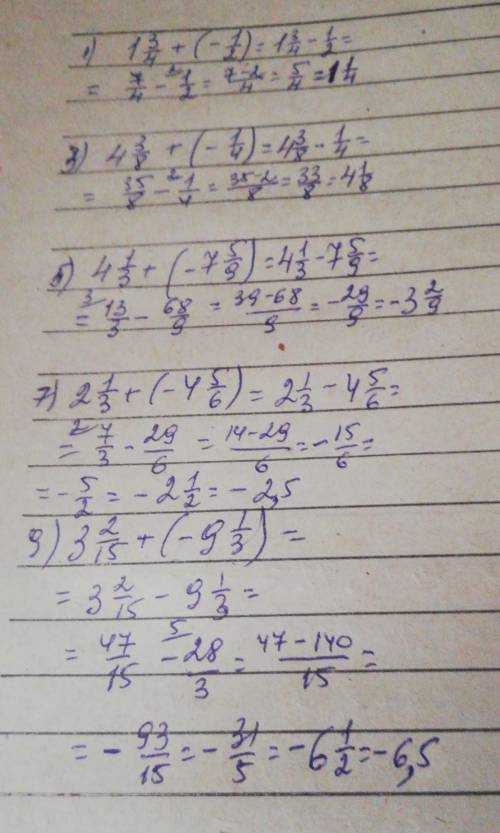 1) 1 3/4 + (- 1/2) = 1 3/4 - 1/2 =
= 7/4 - ²1/2 = 7-2/4 = 5/4 = 1 1/4
3) 4 3/8 + (- 1/4) = 4 3/8 - 1/4 =
= 35/8 - ²1/4 = 35-2/8 = 33/8 = 4 1/8
5) 4 1/3 + (-7 5/9) = 4 1/3 - 7 5/9 =
= ³13/3 - 68/9 = 39-68/9 = - 29/9 = -3 2/9
7) 2 1/3 + (-4 5/6) = 2 1/3 - 4 5/6 =
= ²7/3 - 29/6 = 14-29/6 = - 15/6 =
= - 5/2 = -2 1/2 = -2,5
9) 3 2/15 + (-9 1/3) =
= 3 2/15 - 9 1/3 =
= 47/15 - ⁵28/3 = 47-140/15 =
= - 93/15 = - 31/5 = -6 1/2 = -6,5